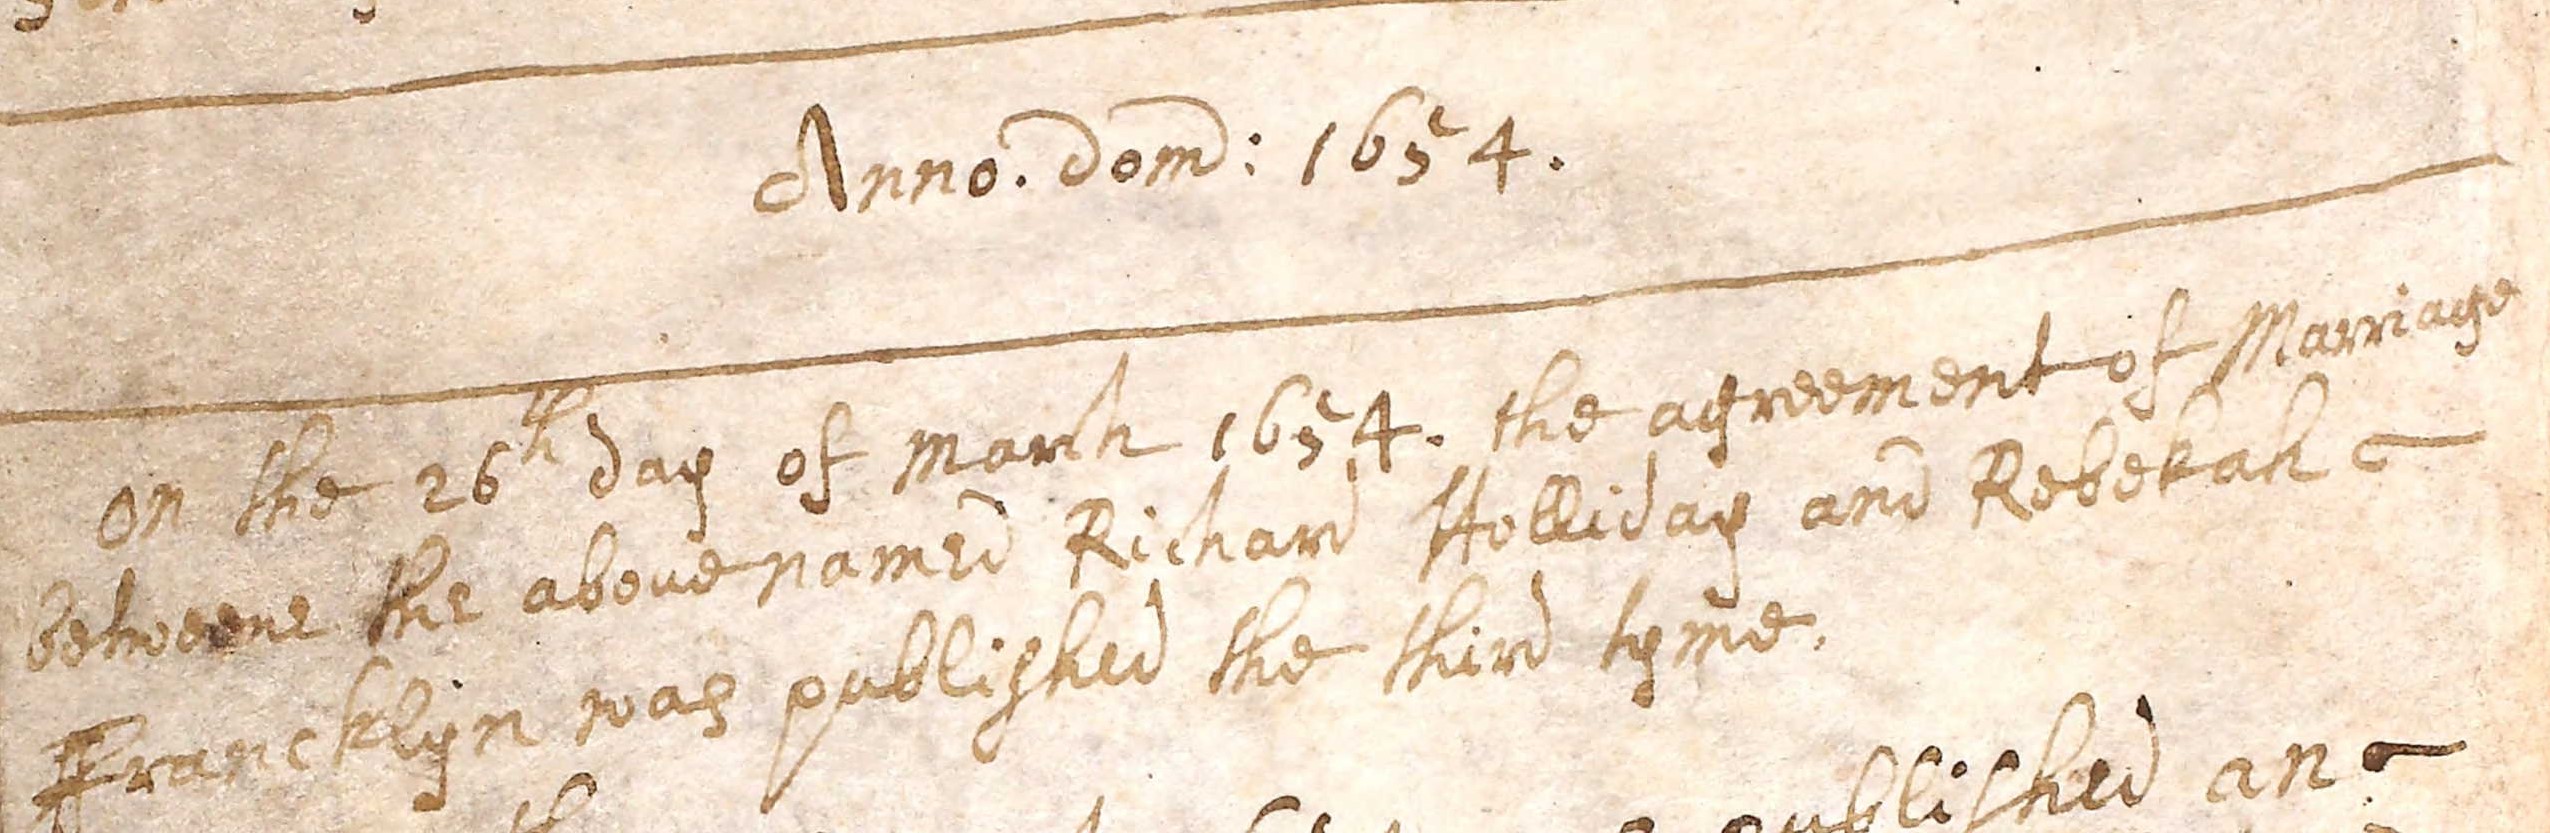 Anno. dom: 1654.
on the 26th day of march 1654. the agreement of Marriage
betweene the aboue named Richard Holliday and Rebekah
Francklyn was published the third tyme.
published an